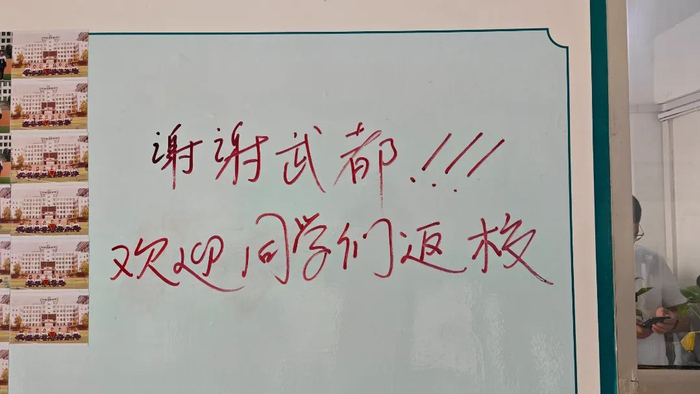 谢谢武都!!!
欢迎同学们返校